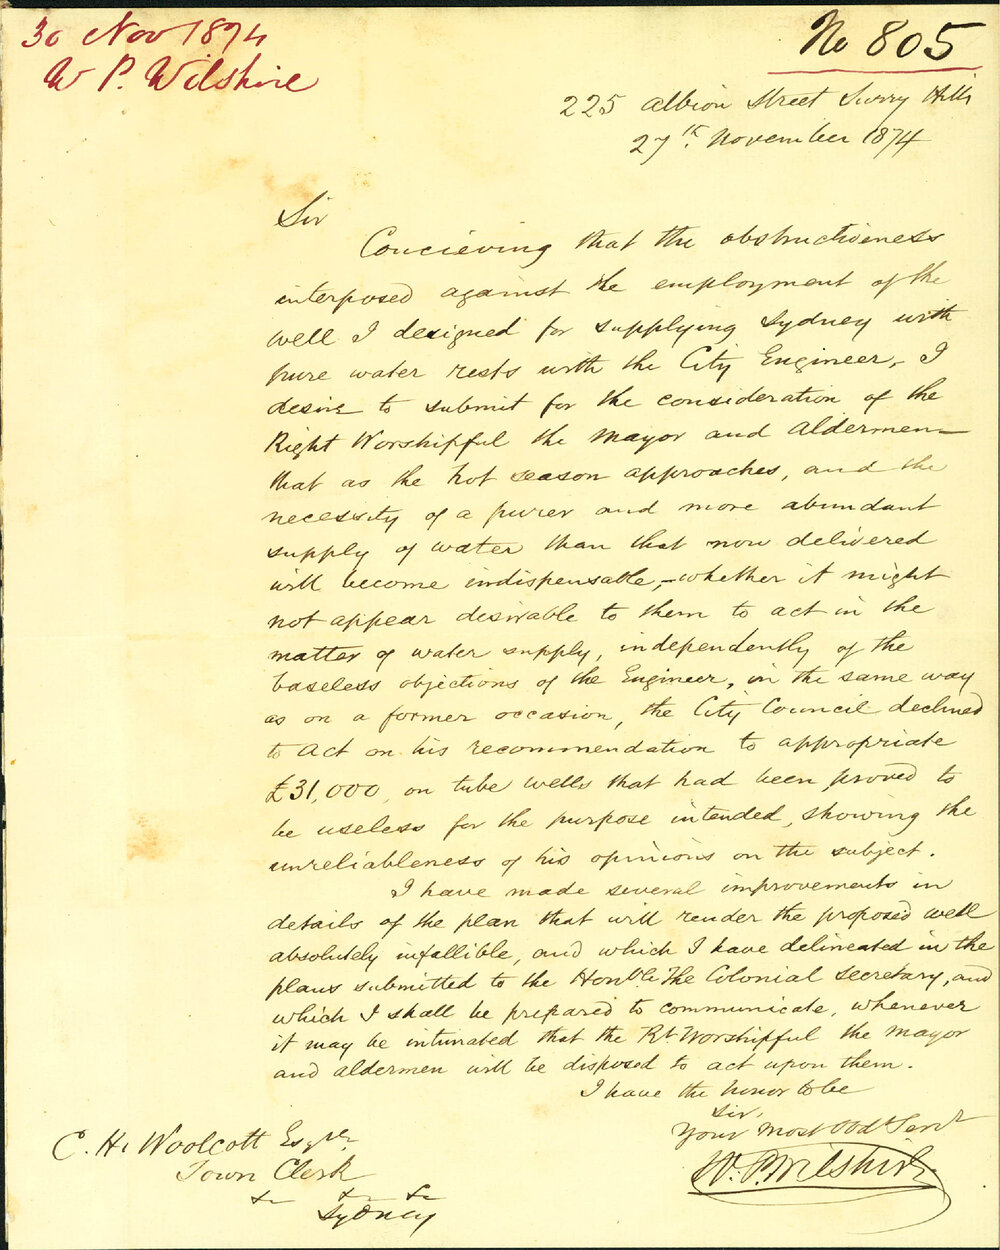 30 Nov 1874
W P. Wilshire
No 805
225 Albion Street Surry Hills
27th November 1874
Sir
Concieving that the obstructiveness
interposed against the employment of the
well I designed for supplying Sydney with
pure water rests with the City Engineer, I
desire to submit for the consideration of the
Right Worshipful the Mayor and Aldermen—
that as the hot season approaches, and the
necessity of a purer and more abundant
supply of water than that now delivered
will become indispensable,—whether it might
not appear desirable to them to act in the
matter of water supply, independently of the
baseless objections of the Engineer, in the same way
as on a former occasion, the City Council declined
to act on his recommendation to appropriate
£31,000, on tube wells that had been proved to
be useless for the purpose intended, showing the
unreliableness of his opinions on the subject.
I have made several improvements in
details of the plan that will render the proposed well
absolutely infallible, and which I have delineated in the
plans submitted to the Honble The Colonial Secretary, and
which I shall be prepared to communicate, whenever
it may be intimated that the Rt Worshipful the Mayor
and aldermen will be disposed to act upon them.
I have the honor to be
Sir,
Your Most Obdt Servt
W. P. Wilshire
C. H. Woolcott Esqre
Town Clerk
&c &c &c
Sydney